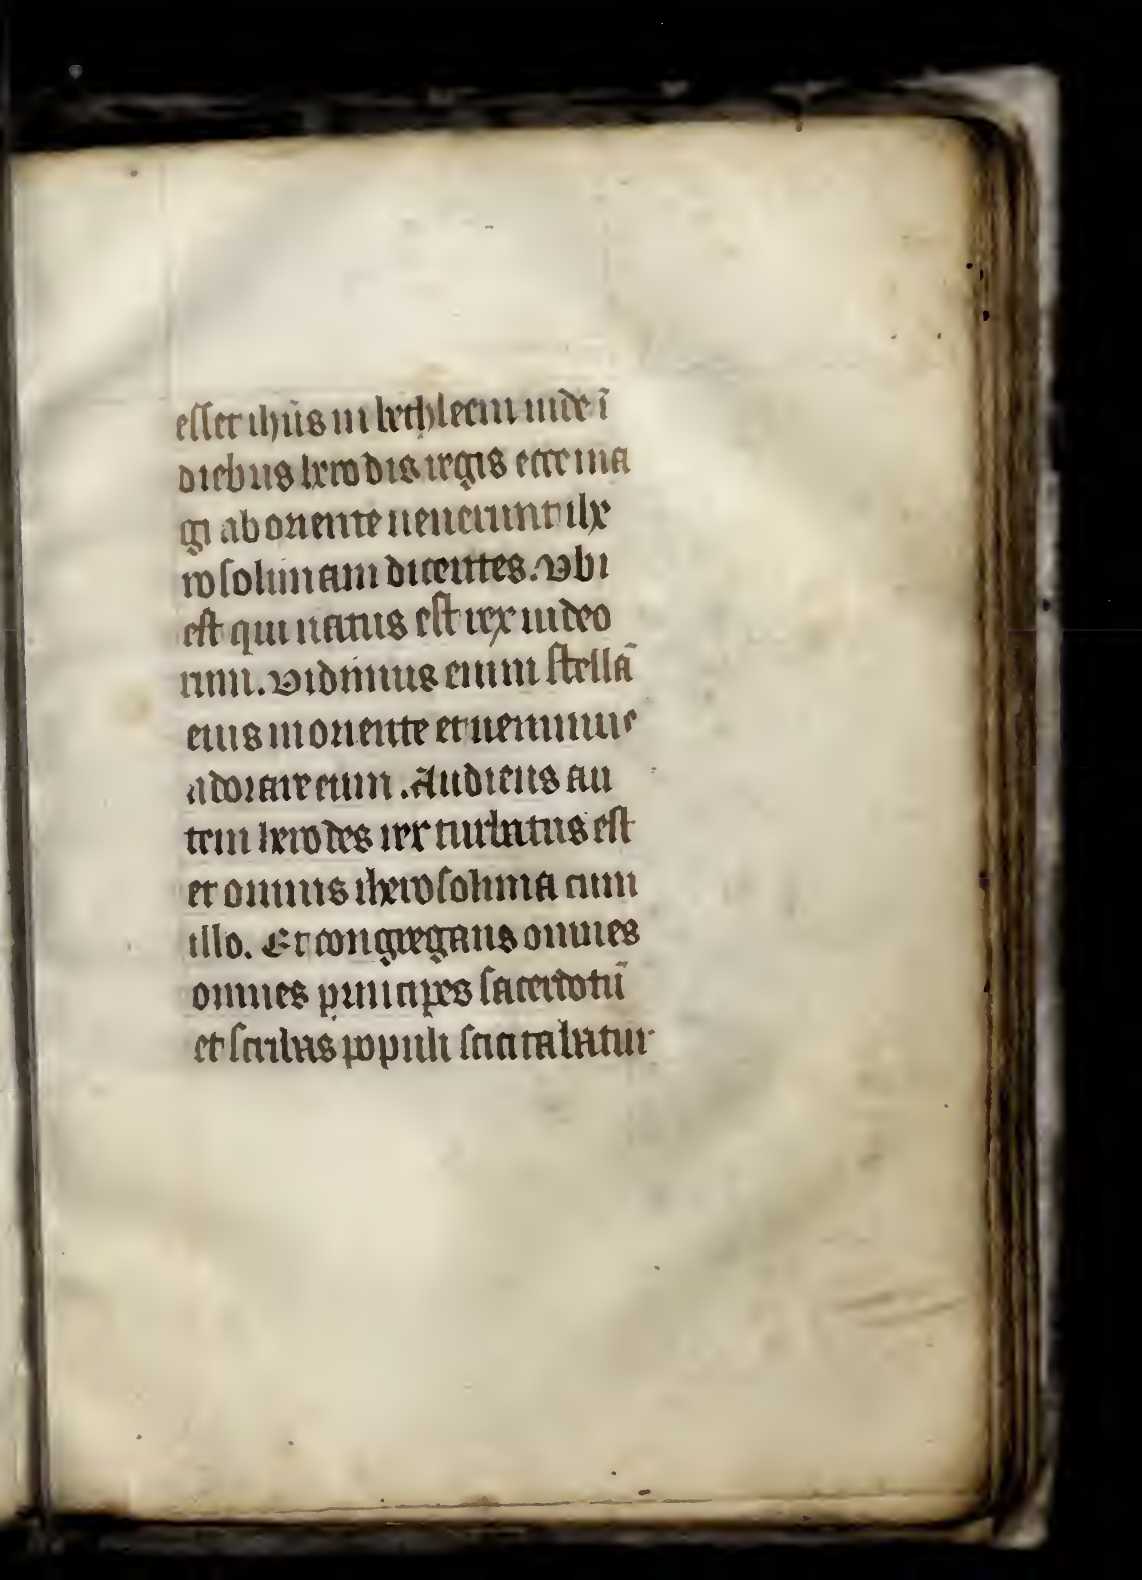 esset ihūs in bethleem iude ī
diebus herodis regis ecce ma
gi ab oriente uenerunt ihe
rosolimam dicentes. Vbi
est qui natus est rex iudeo
rum. Vidimus enim stellā
eius in oriente et uenimus
adorare eum. Audiens au
tem herodes rex turbatus est
et omnis iherosolima cum
illo. Et congregans omnes
omnes principes sacerdotū
et scribas populi sciscitabatur